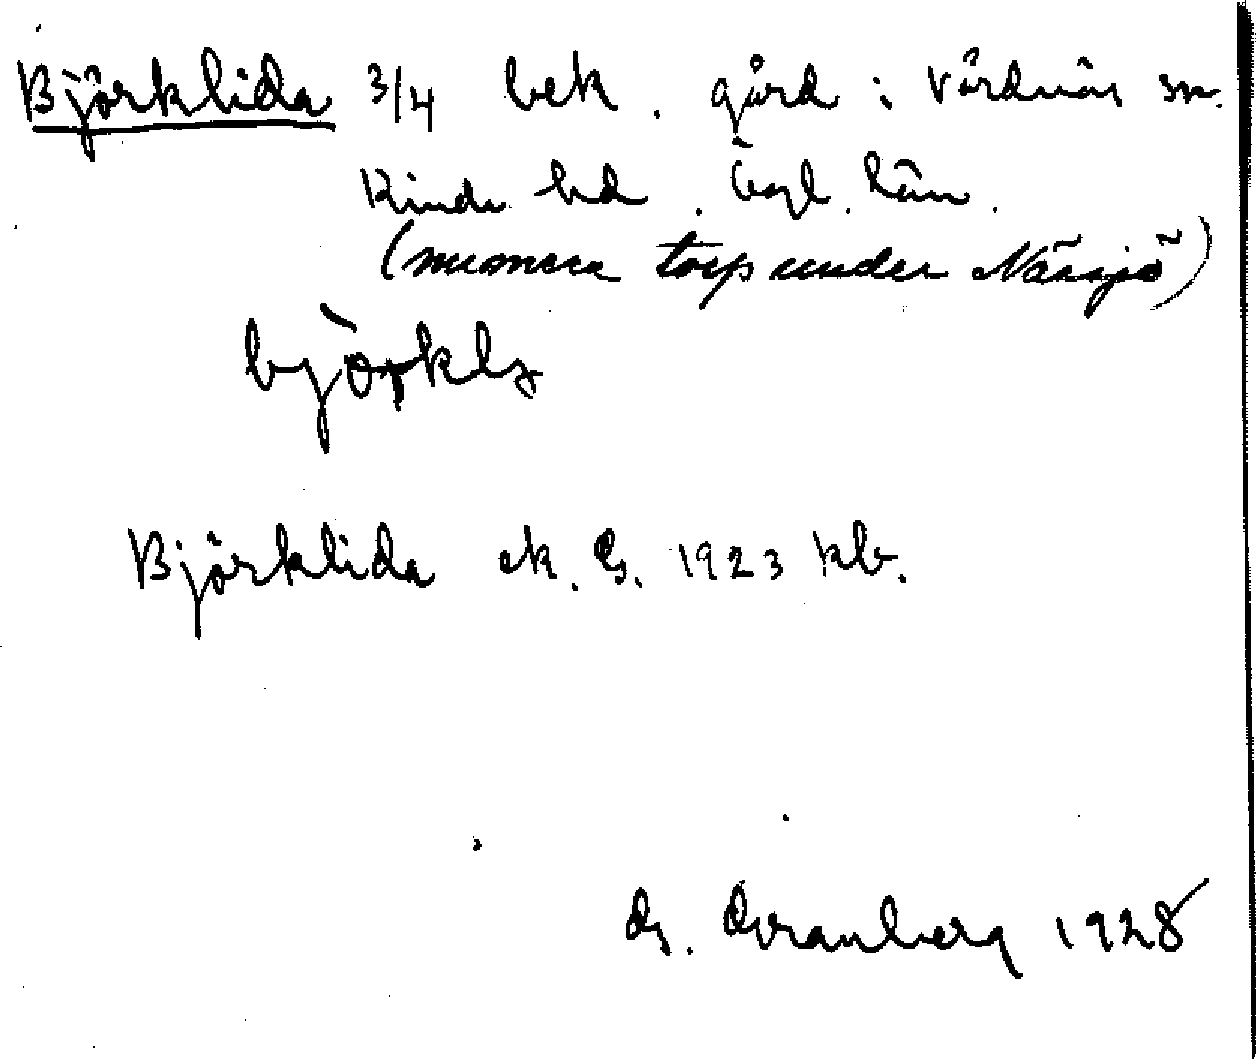 Björklida 3/4 bek. gård i Vårdnäs sn.
Kinda hd. Ögl. län.
(numera torp under Nässjö)
björkls
Björklida ek. G. 1923 kb.
G. Granberg 1928